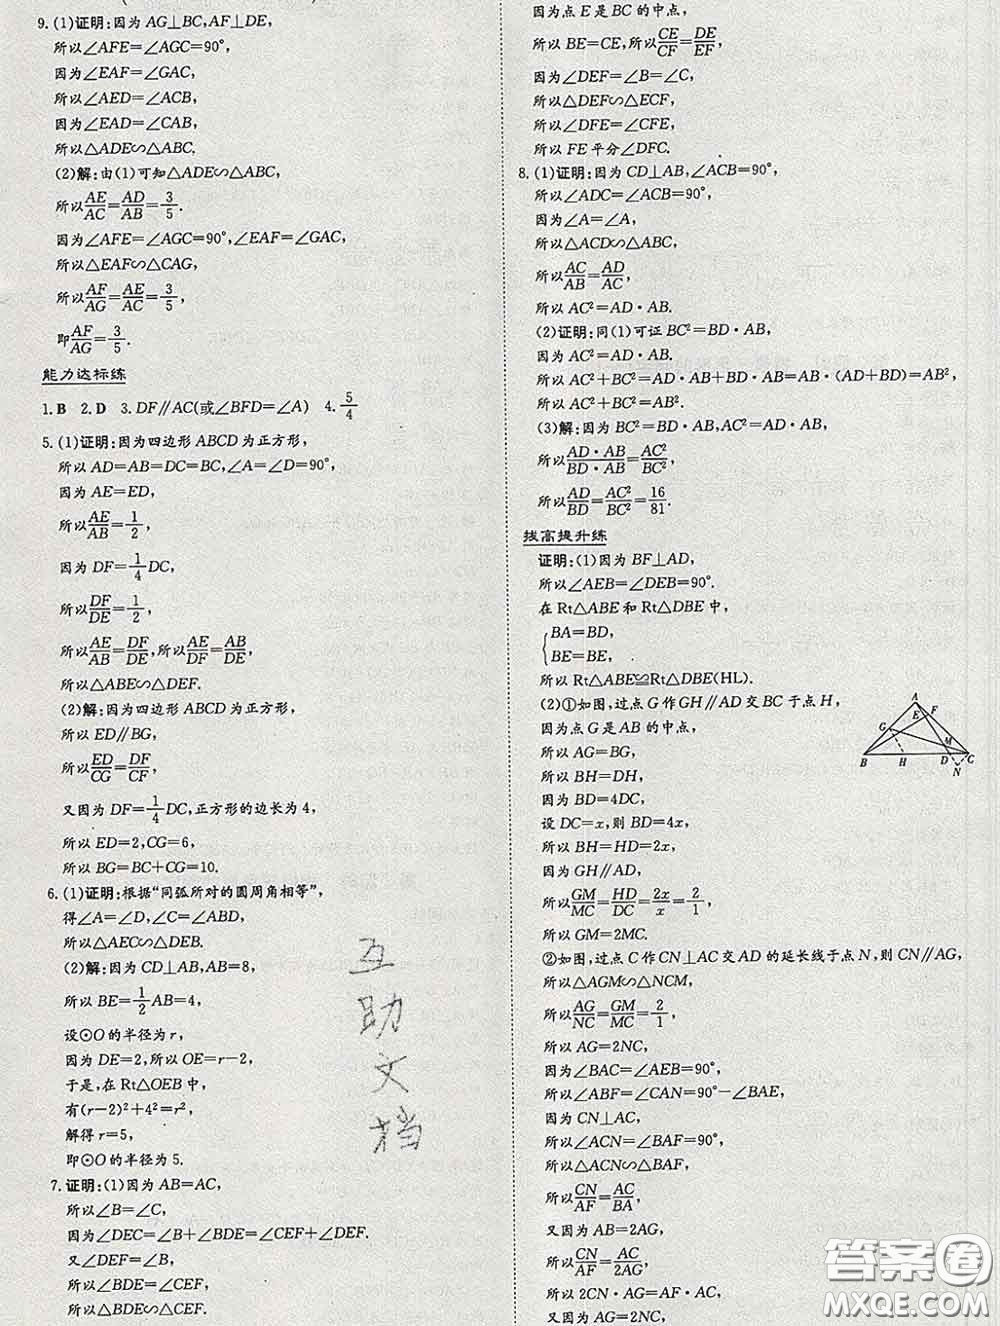 9. (1)证明:因为 AG⊥BC,AF⊥DE,
所以∠AFE=∠AGC=90°,
因为∠EAF=∠GAC,
所以∠AED=∠ACB,
因为∠EAD=∠CAB,
所以△ADE∽△ABC.
(2)解:由(1)可知△ADE∽△ABC,
所以AE/AC=AD/AB=3/5.
因为∠AFE=∠AGC=90°,∠EAF=∠GAC,
所以△EAF∽△CAG,
所以AF/AG=AE/AC=3/5,
即AF/AG=3/5.
能力达标练
1. B 2. D 3. DF∥AC(或∠BFD=∠A) 4. 5/4
5. (1)证明:因为四边形 ABCD 为正方形,
所以 AD=AB=DC=BC,∠A=∠D=90°,
因为 AE=ED,
所以AE/AB=1/2,
因为 DF=1/4DC,
所以DF/DE=1/2,
所以AE/AB=DF/DE,所以AE/DF=AB/DE,
所以△ABE∽△DEF.
(2)解:因为四边形 ABCD 为正方形,
所以 ED∥BG,
所以ED/CG=DF/CF,
又因为 DF=1/4DC,正方形的边长为 4,
所以 ED=2,CG=6,
所以 BG=BC+CG=10.
6. (1)证明:根据“同弧所对的圆周角相等”,
得∠A=∠D,∠C=∠ABD,
所以△AEC∽△DEB.
(2)解:因为 CD⊥AB,AB=8,
所以 BE=1/2AB=4,
设⊙O 的半径为 r,
因为 DE=2,所以 OE=r-2,
于是,在 Rt△OEB 中,
有(r-2)²+4²=r²,
解得 r=5,
即⊙O 的半径为 5.
7. 证明:(1)因为 AB=AC,
所以∠B=∠C,
因为∠DEC=∠B+∠BDE=∠CEF+∠DEF.
又∠DEF=∠B,
所以∠BDE=∠CEF,
所以△BDE∽△CEF.
因为点 E 是 BC 的中点,
所以 BE=CE,所以CE/CF=DE/EF,
因为∠DEF=∠B=∠C,
所以△DEF∽△ECF,
所以∠DFE=∠CFE,
所以 FE 平分∠DFC.
8. (1)证明:因为 CD⊥AB,∠ACB=90°,
所以∠ADC=∠ACB=90°,
因为∠A=∠A,
所以△ACD∽△ABC,
所以AC/AB=AD/AC,
所以 AC²=AD·AB.
(2)证明:同(1)可证 BC²=BD·AB,
因为 AC²=AD·AB,
所以 AC²+BC²=AD·AB+BD·AB=AB·(AD+BD)=AB²,
所以 AC²+BC²=AB².
(3)解:因为 BC²=BD·AB,AC²=AD·AB,
所以AD·AB/BD·AB=AC²/BC²,
所以AD/BD=AC²/BC²=16/81.
拔高提升练
证明:(1)因为 BF⊥AD,
所以∠AEB=∠DEB=90°.
在 Rt△ABE 和 Rt△DBE 中,
BA=BD,
BE=BE,
所以 Rt△ABE≌Rt△DBE(HL).
(2)①如图,过点 G 作 GH∥AD 交 BC 于点 H,
因为点 G 是 AB 的中点,
所以 AG=BG,
所以 BH=DH,
因为 BD=4DC,
设 DC=x,则 BD=4x,
所以 BH=HD=2x,
因为 GH∥AD,
所以GM/MC=HD/DC=2x/x=2/1,
所以 GM=2MC.
②如图,过点 C 作 CN⊥AC 交 AD 的延长线于点 N,则 CN∥AG,
所以△AGM∽△NCM,
所以AG/NC=GM/MC=2/1,
所以 AG=2NC,
因为∠BAC=∠AEB=90°,
所以∠ABF=∠CAN=90°-∠BAE,
因为 CN⊥AC,
所以∠ACN=∠BAF=90°,
所以△ACN∽△BAF,
所以CN/AF=AC/BA,
又因为 AB=2AG,
所以CN/AF=AC/2AG,
所以 2CN·AG=AF·AC,
又因为 AG=2NC,
A
G E F
M
B H D C
N
互
助
文
档
答案卷
MXQE.COM